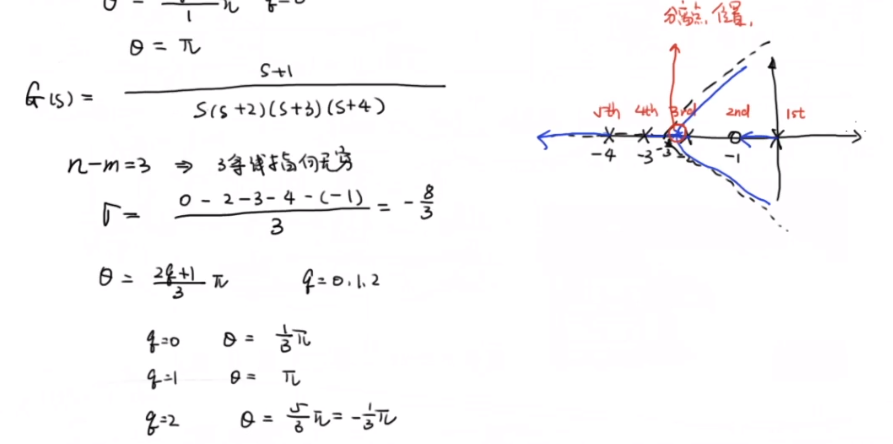 θ = π
G(s) = (s+1) / (s(s+2)(s+3)(s+4))
n-m=3 ⇒ 3条线指向无穷
σ = (0-2-3-4-(-1)) / 3 = -8/3
θ = (2q+1)/3 π q=0.1.2
q=0 θ = 1/3 π
q=1 θ = π
q=2 θ = 5/3 π = -1/3 π
分离点,位置.
5th 4th 3rd 2nd 1st
-4 -3 -2 -1